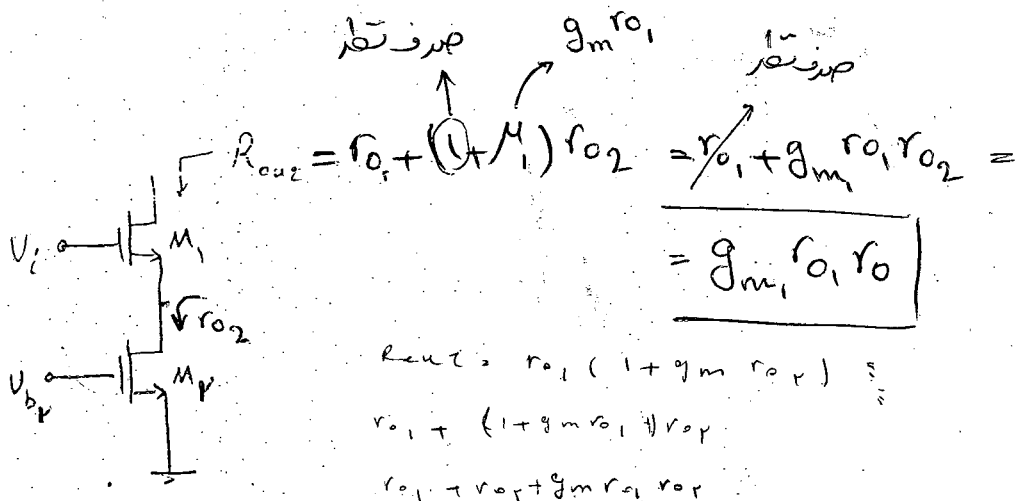 صرف نظر
g_m r_{o1}
صرف نظر
R_{out} = r_{o1} + (1 + μ_1) r_{o2} = r_{o1} + g_{m1} r_{o1} r_{o2} =
= g_{m1} r_{o1} r_o
V_i
M_1
r_{o2}
V_{b۲}
M_۲
R_{out} = r_{o1} ( 1 + g_m r_{o۲} )
r_{o1} + (1 + g_m r_{o1}) r_{o۲}
r_{o1} + r_{o۲} + g_m r_{o1} r_{o۲}